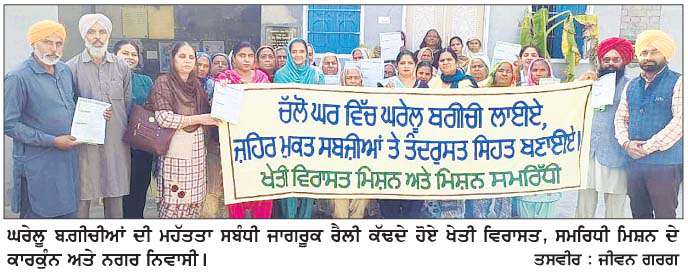 ਚੱਲੋ ਘਰ ਵਿੱਚ ਘਰੇਲੂ ਬਗੀਚੀ ਲਾਈਏ,
ਜ਼ਹਿਰ ਮੁਕਤ ਸਬਜ਼ੀਆਂ ਤੇ ਤੰਦਰੁਸਤ ਸਿਹਤ ਬਣਾਈਏ।
ਖੇਤੀ ਵਿਰਾਸਤ ਮਿਸ਼ਨ ਅਤੇ ਮਿਸ਼ਨ ਸਮਰਿੱਧੀ
ਘਰੇਲੂ ਬਗ਼ੀਚੀਆਂ ਦੀ ਮਹੱਤਤਾ ਸਬੰਧੀ ਜਾਗਰੂਕ ਰੈਲੀ ਕੱਢਦੇ ਹੋਏ ਖੇਤੀ ਵਿਰਾਸਤ, ਸਮਰਿਧੀ ਮਿਸ਼ਨ ਦੇ
ਕਾਰਕੁੰਨ ਅਤੇ ਨਗਰ ਨਿਵਾਸੀ। ਤਸਵੀਰ : ਜੀਵਨ ਗਰਗ